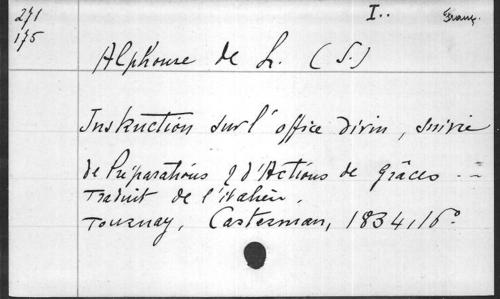 271
175
I..
Franç.
Alphonse de L. (S.)
Instruction sur l'office divin, suivie
de Préparations & d'Actions de grâces --
Traduit de l'italien.
Tournay, Casterman, 1834, 16°